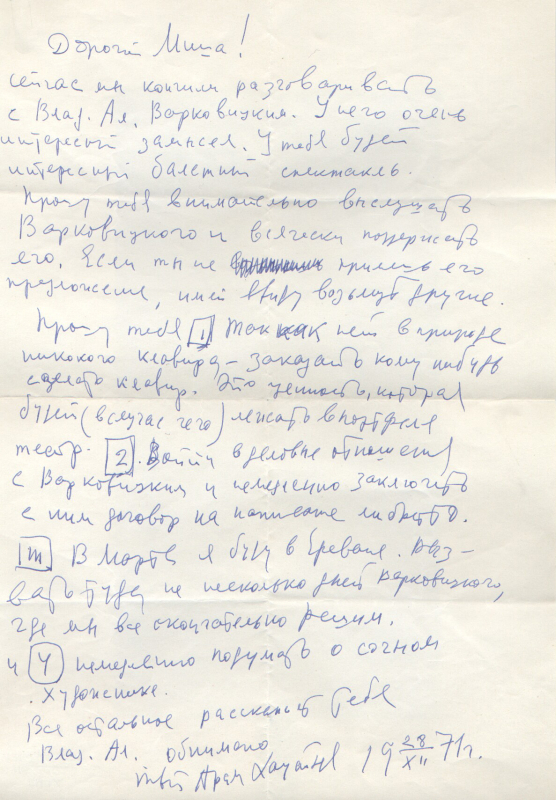 Дорогой Миша!
сейчас мы кончили разговаривать
с Влад. Ал. Варковицким. У него очень
интересный замысел. У тебя будет
интересный балетный спектакль.
Прошу тебя внимательно выслушать
Варковицкого и всячески поддержать
его. Если ты не примешь его
предложение, имей ввиду возьмут другие.
Прошу тебя 1 Так как нет в природе
никакого клавира – заказать кому нибудь
сделать клавир. Это ценность, которая
будет (в случае чего) лежать в портфеле
театр. 2. Войти в деловые отношения
с Варковицким и немедленно заключить
с ним договор на написание либретто.
III В Марте я буду в Ереване. Выз-
вать туда на несколько дней Варковицкого,
где мы все окончательно решим.
и 4 немедленно подумать о сочном
художнике.
Все остальное расскажет тебе
Влад. Ал. обнимаю
твой Арам Хачатур 19 28/XII 71 г.